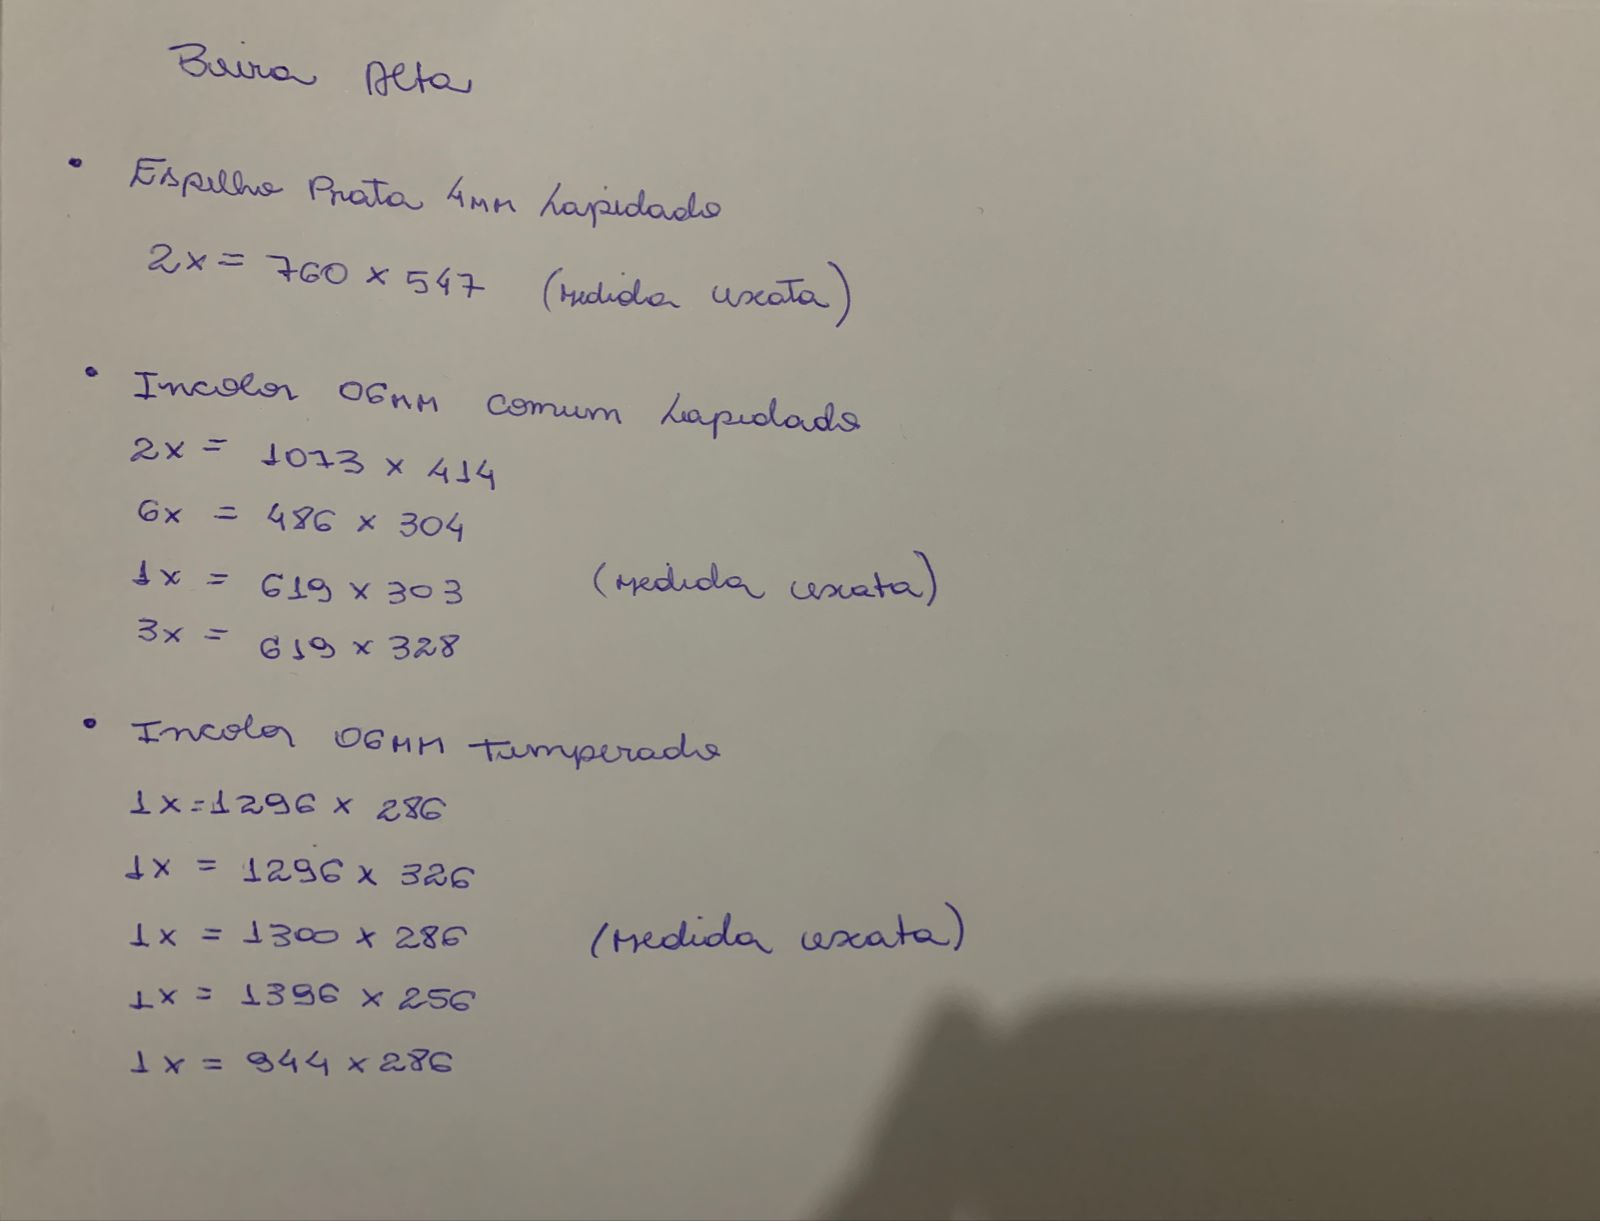 Beira Alta
• Espelho Prata 4mm Lapidado
2x = 760 x 547 (medida exata)
• Incolor 06mm comum Lapidado
2x = 1073 x 414
6x = 486 x 304
1x = 619 x 303 (medida exata)
3x = 619 x 328
• Incolor 06mm temperado
1x = 1296 x 286
1x = 1296 x 326
1x = 1300 x 286 (medida exata)
1x = 1396 x 256
1x = 944 x 286